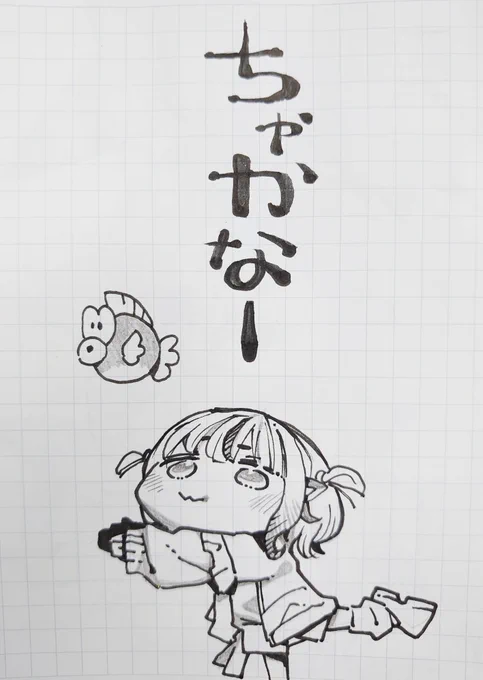 ちゃかなー